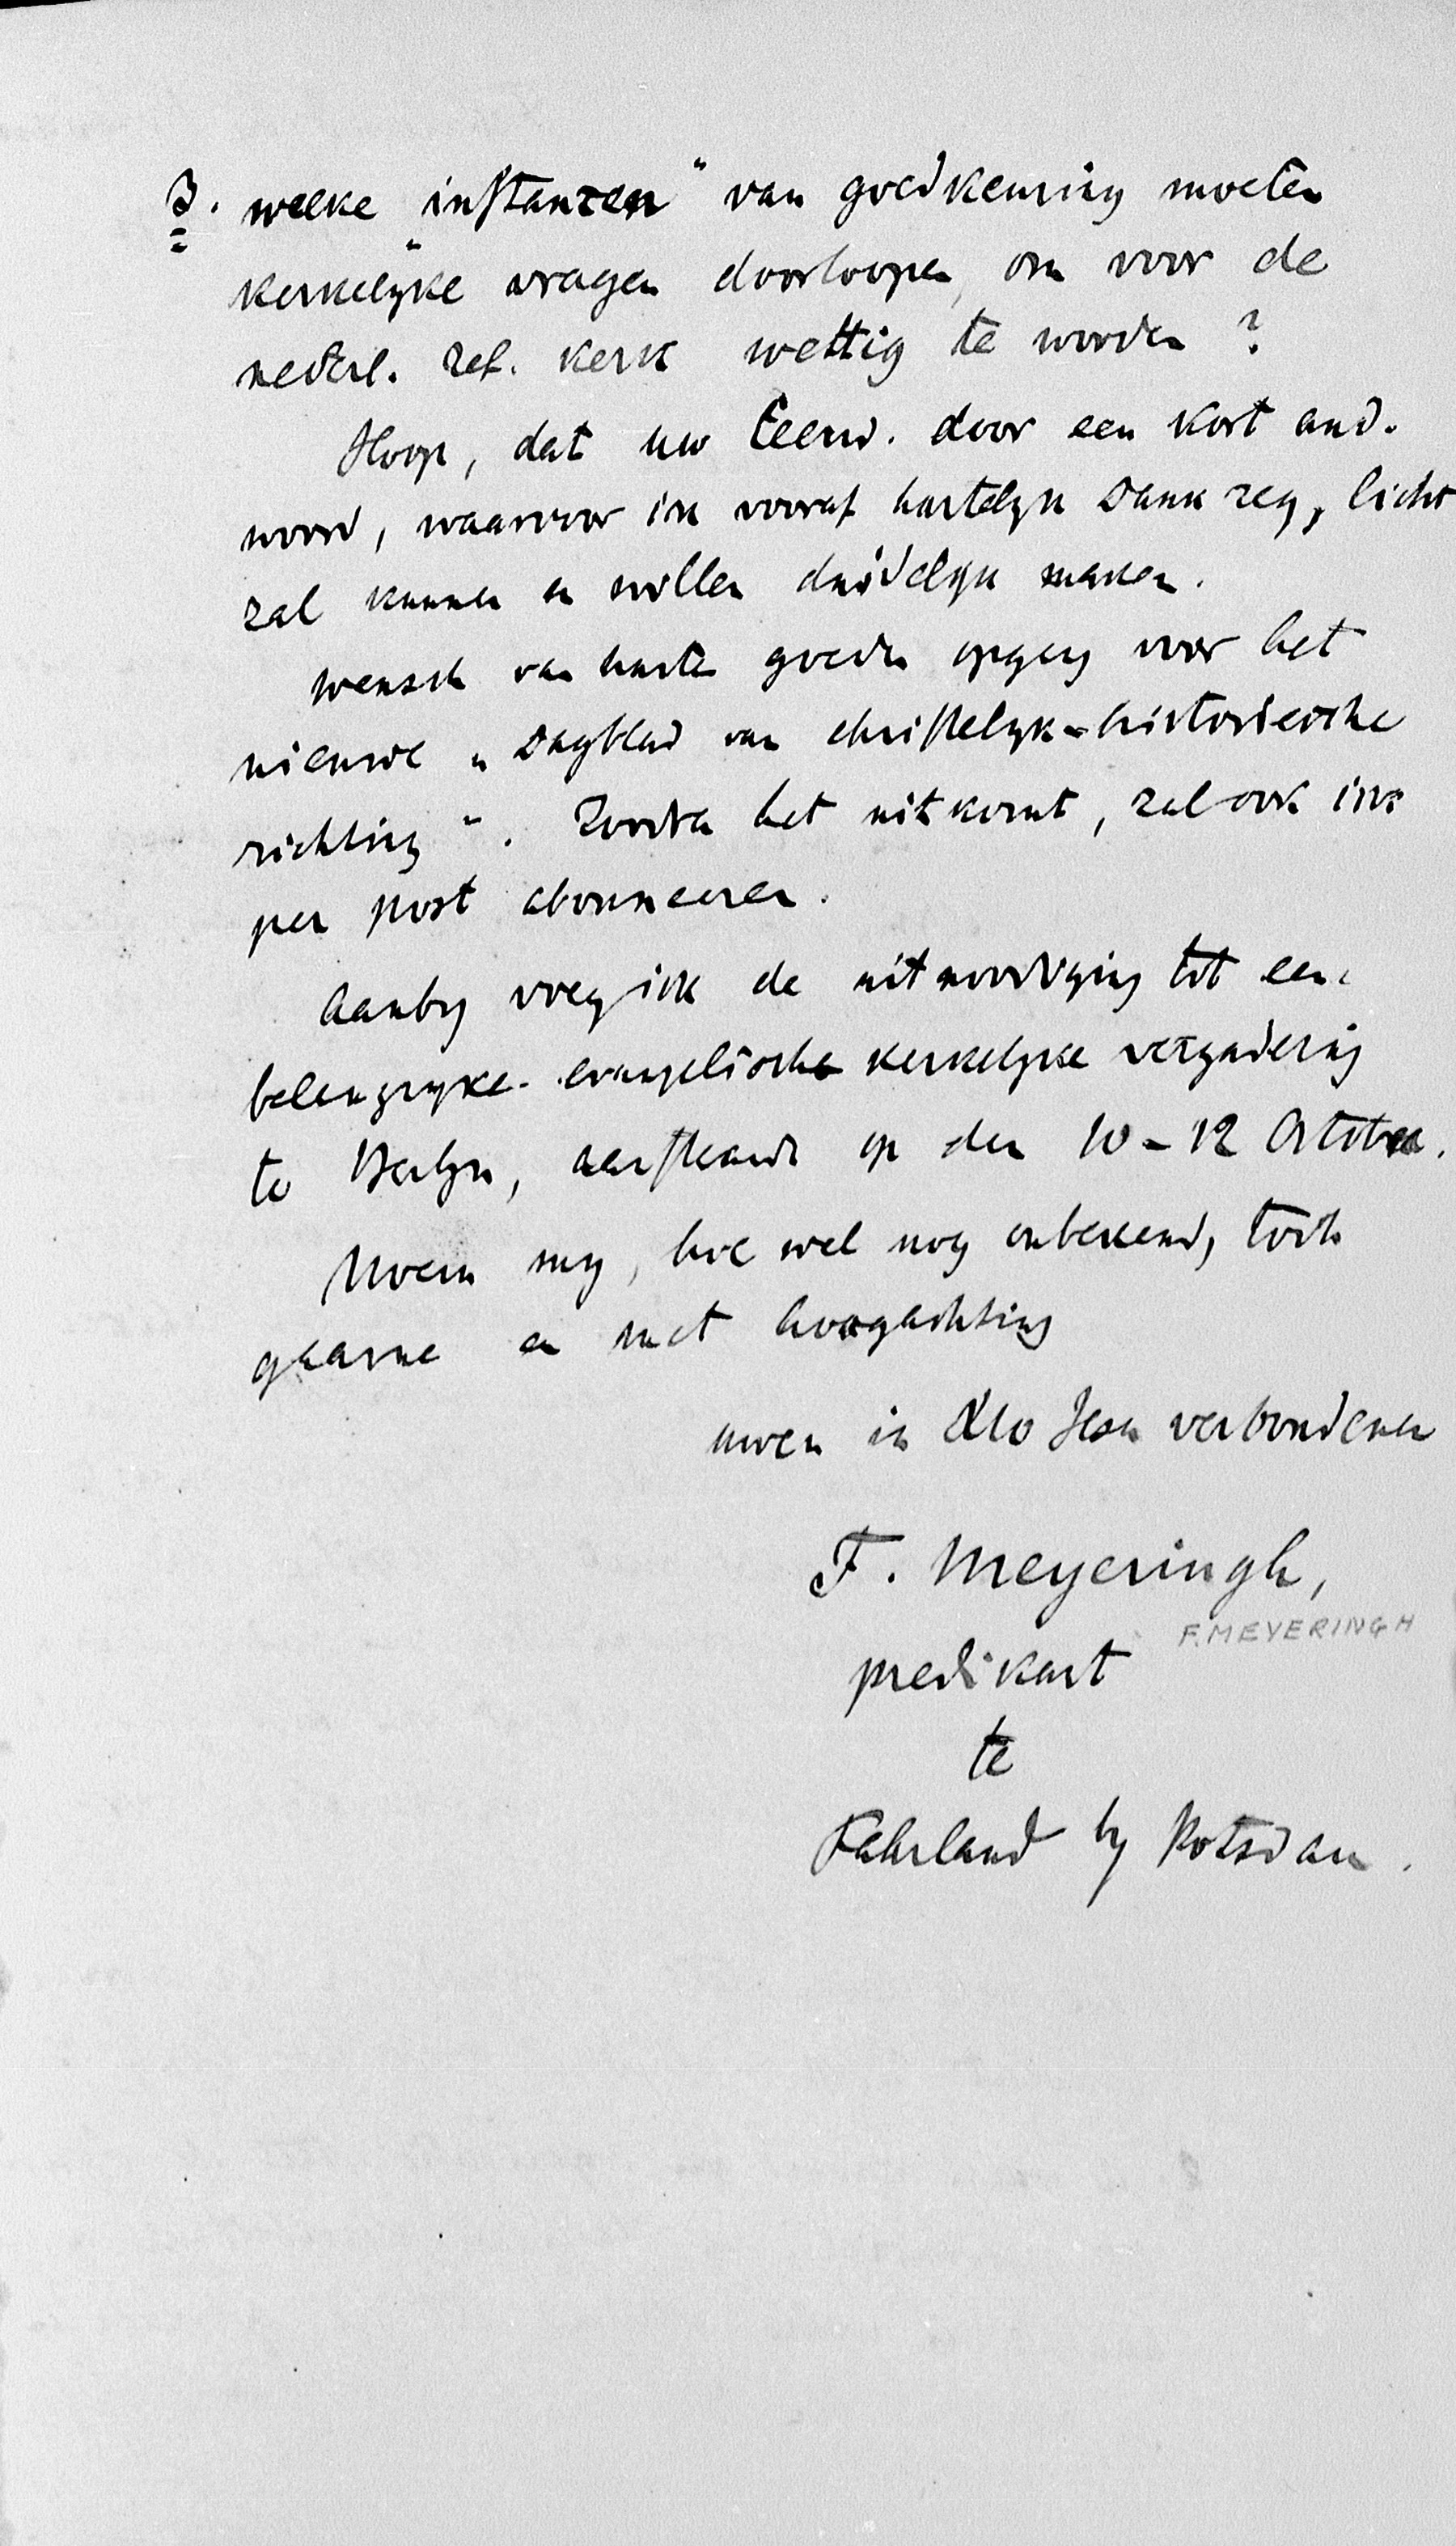 3. welke „instanzen“ van goedkeuring moeten
kerkelyke vragen doorloopen, om voor de
nederl. ref. kerk wettig te worden?
Hoop, dat uw Eerw. door een kort and.
woord, waarvoor ik vooraf hartelyk dank zeg, licht
zal kunnen en willen duidelyk maken.
Wensch van harte goeden opgang voor het
nieuwe „Dagblad van christelyk-historische
richting“. Zoodra het uitkomt, zal ook ik
per post abonneeren.
Aanby voeg ik de uitnoodiging tot een
belangryke evangelische kerkelyke vergadering
te Berlyn, aanstaande op den 10-12 October.
Noem my, hoe wel nog onbekend, toch
gaarne en met hoogachting
uwen in Xto Jesu verbondenen
F. Meyeringh,
F. MEYERINGH
predikant
te
Fahrland by Potsdam.